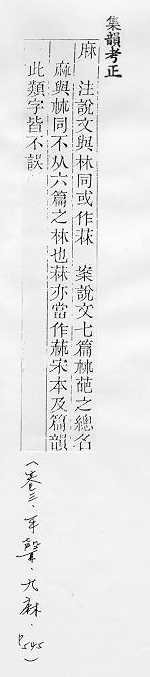 集韻考正
麻 注說文與𣏟同或作菻 案說文七篇𣏟萉之總名
麻與𣏟同不从六篇之林也菻亦當作𦱒宋本及篇韻
此類字皆不誤
(卷三．平聲．九麻．P.545)